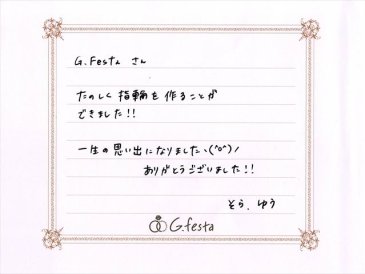 G.Festa さん
たのしく指輪を作ることが
できました!!
一生の思い出になりましたヽ(^o^)ノ
ありがとうございました!!
そら、ゆう
G.festa